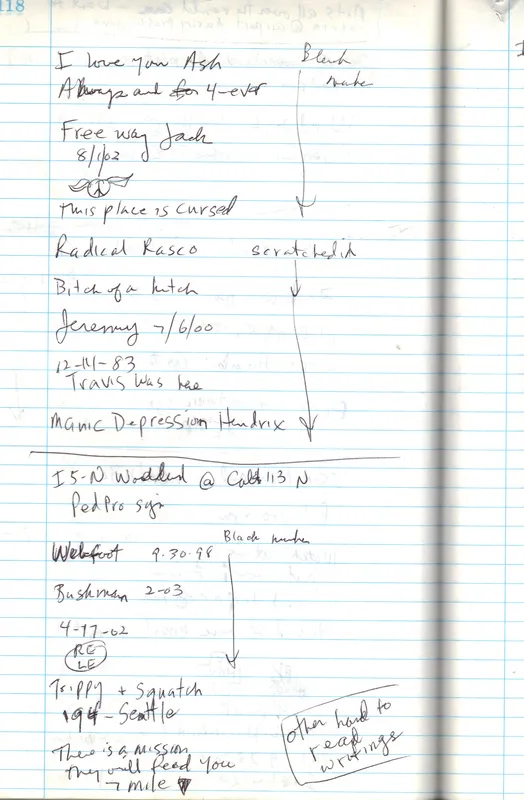 118
I love you Ash
Always and for 4-ever
Black
Free way Jack
8/1/02
this place is cursed
Radical Rasco scratched in
Bitch of a hitch
Jeremy 7/6/00
12-14-83
Travis was here
Manic Depression Hendrix
I5-N Woodland @ 113 N
Ped Pro sign
Black marker
Webfoot 9.30.98
Bushman 2-03
4-17-02
RE
LE
Trippy + Squatch
- Seattle
There is a mission
they will feed you
7 mile
other hard to
read
writings